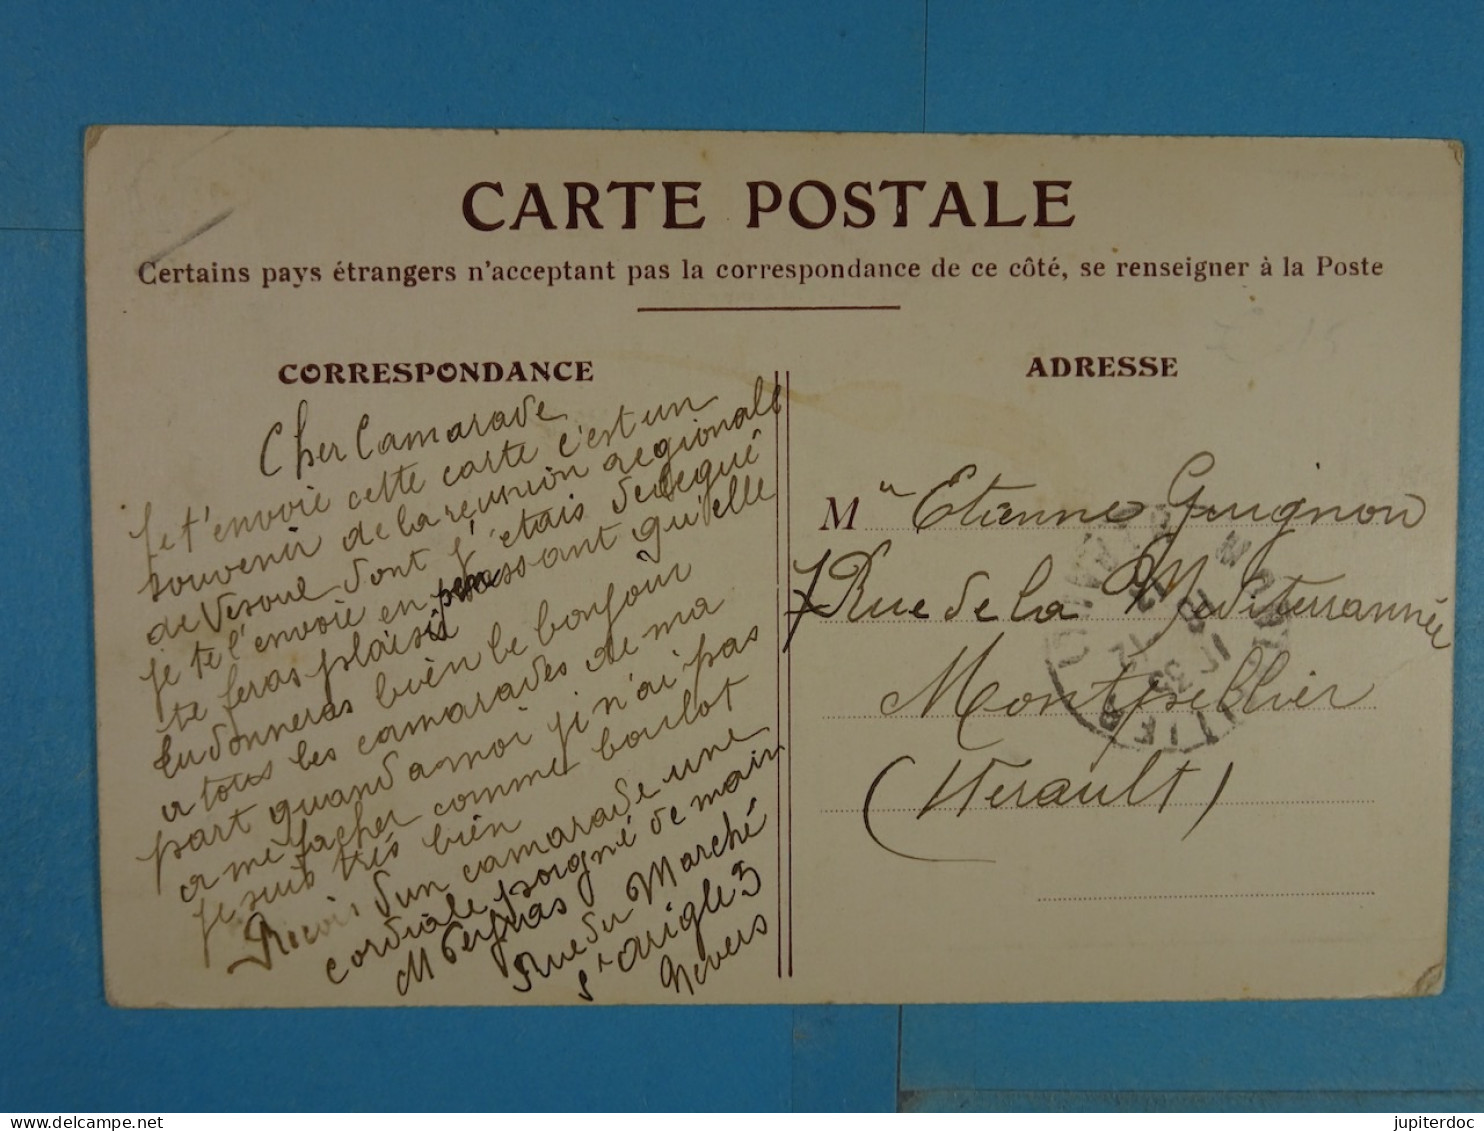 CARTE POSTALE
Certains pays étrangers n'acceptant pas la correspondance de ce côté, se renseigner à la Poste
CORRESPONDANCE
Cher Camarade
Je t'envoie cette carte c'est un
souvenir de la reunion regionall
de Vesoul dont j'étais delegué
je te l'envoie en pensant qu'elle
te feras plaisir
tu donneras bien le bonjour
a tous les camarades de ma
part quand a moi ji n'ai pas
a me facher comme boulot
je suis très bien
Recois d'un camarade une
cordiale poigné de main
Rue du Marché
St Arigle 3
Nevers
ADRESSE
M Etienne Guignon
7 Rue de la Mediterrannée
Montpellier
(Herault)
jupiterdoc